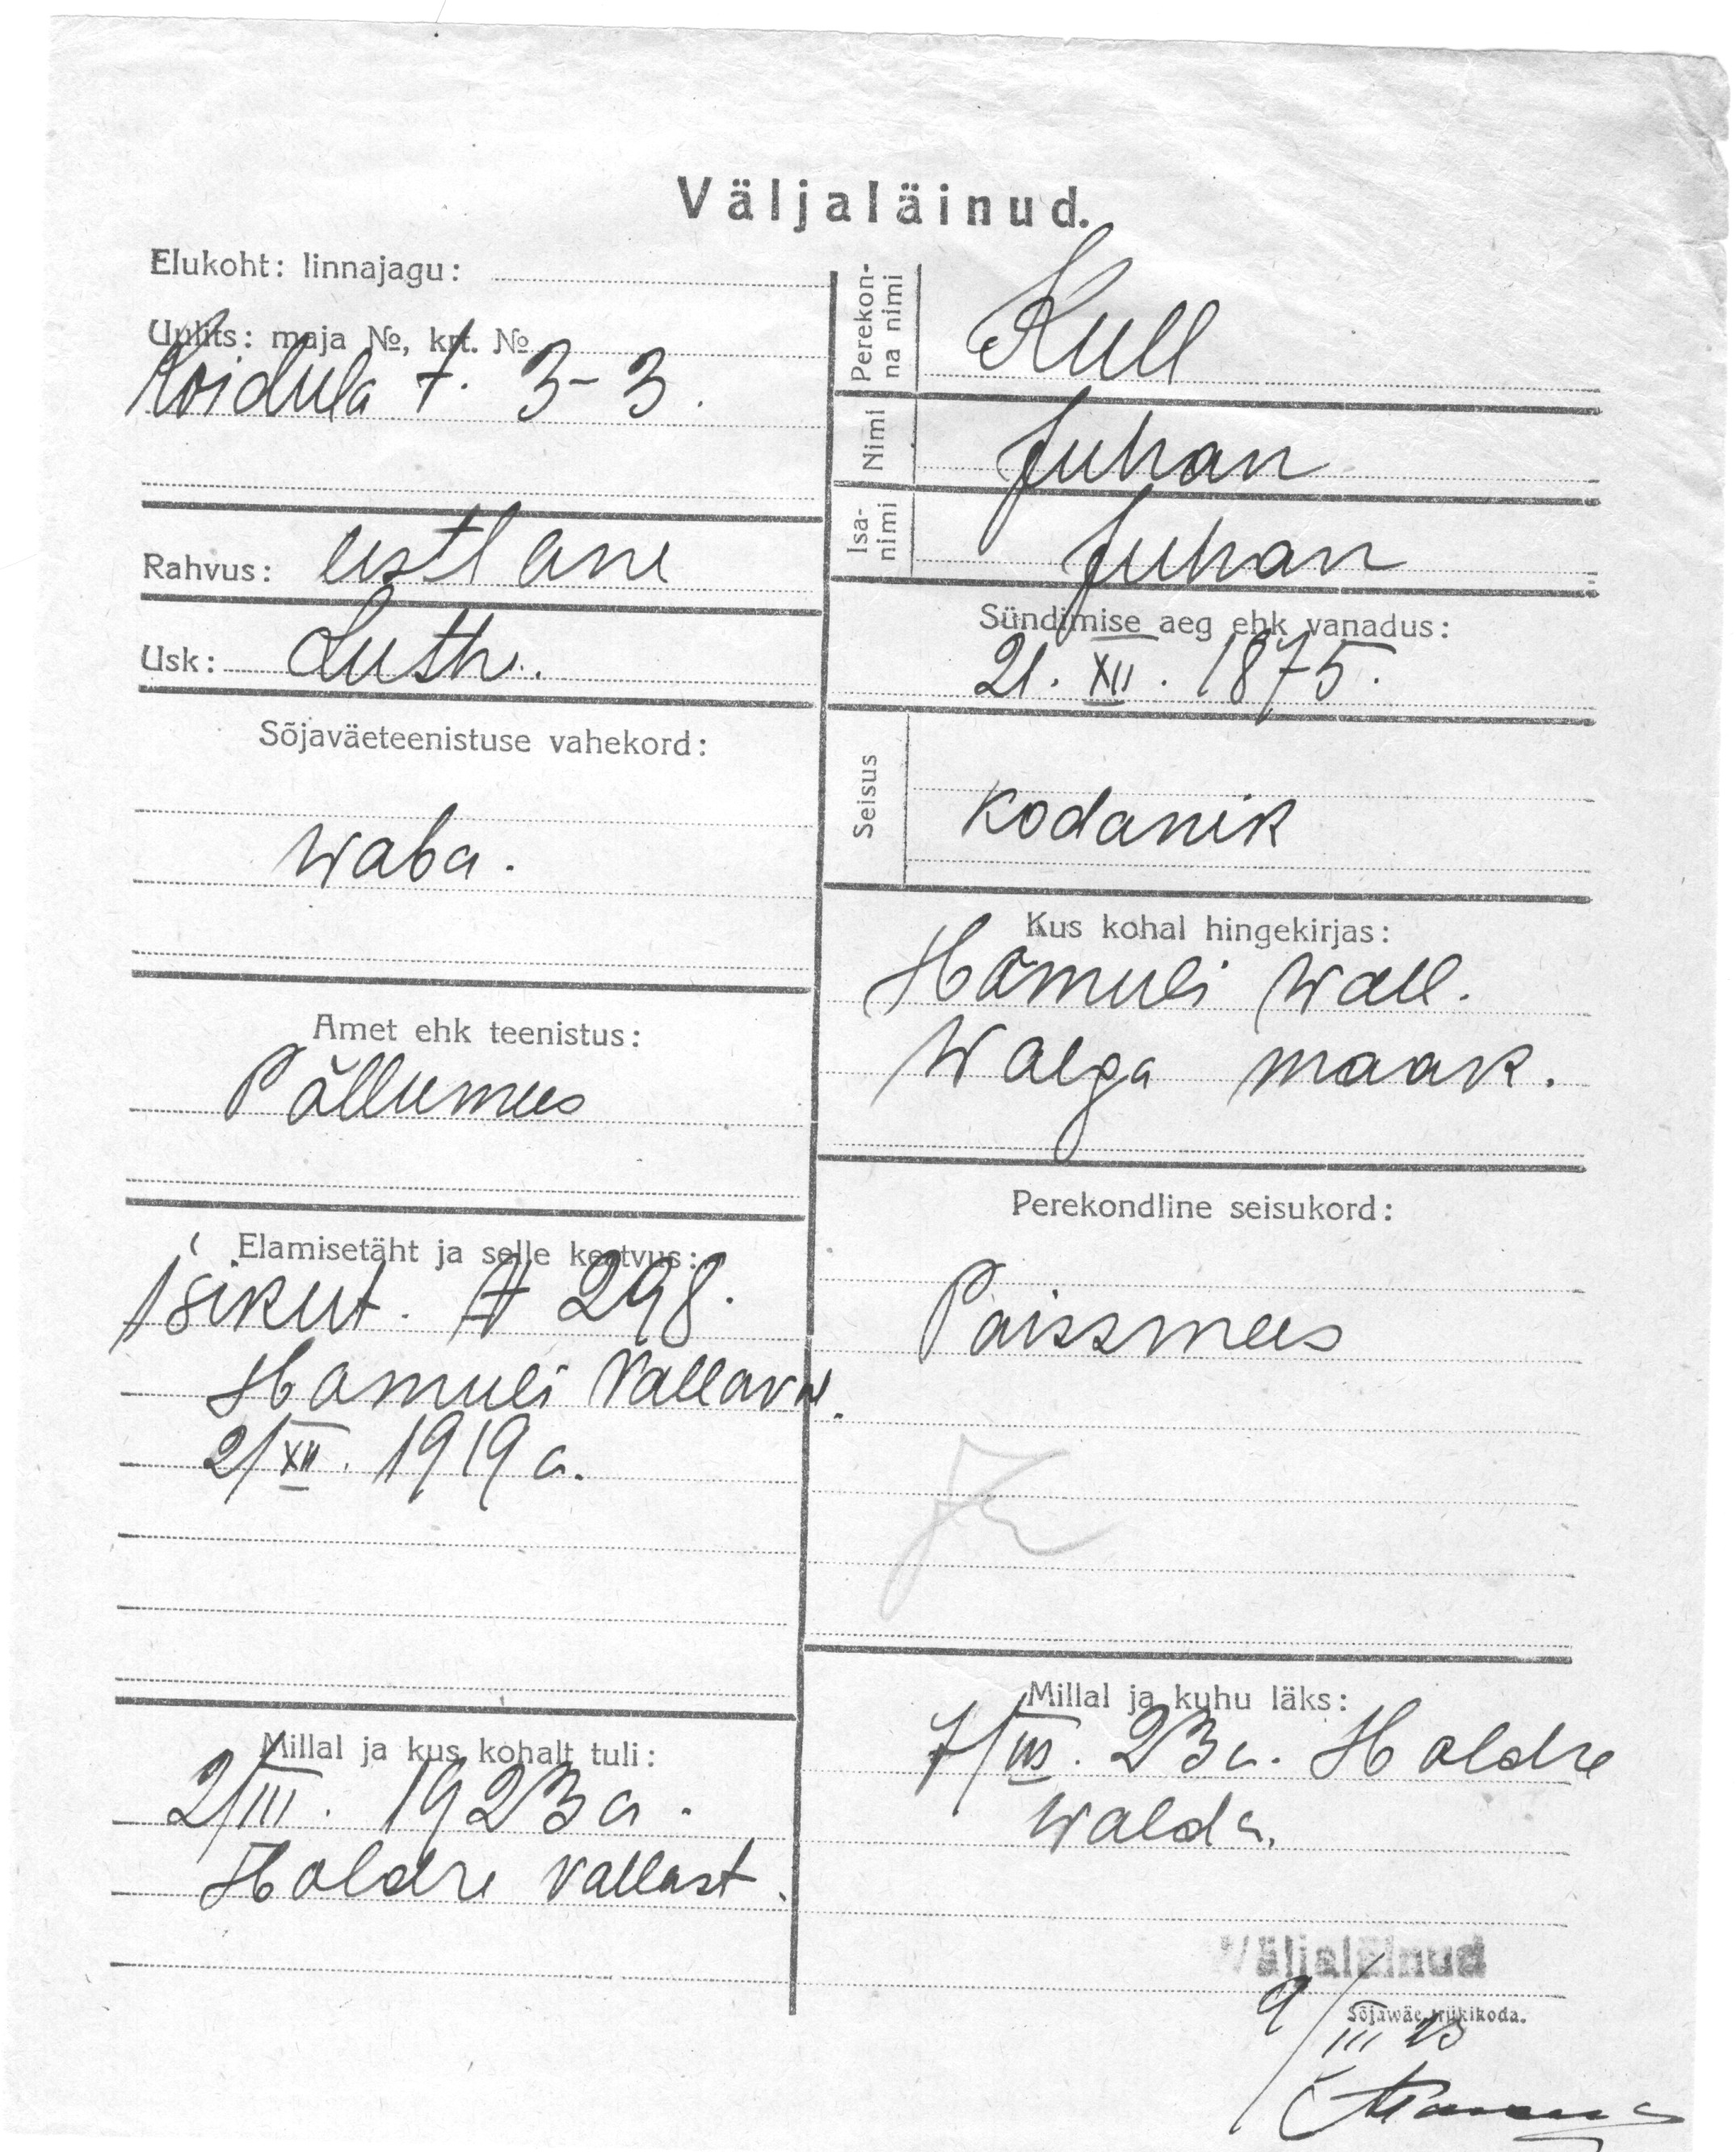 Väljaläinud.
Elukoht: linnajagu:
Uulits: maja №, krt. №
Koidula t. 3-3.
Rahvus: eestlane
Usk: Luth.
Sõjaväeteenistuse vahekord:
waba.
Amet ehk teenistus:
Põllumees
Elamisetäht ja selle kestvus:
Isikut. № 298.
Homuli Vallavw.
2/XII. 1919 a.
Millal ja kus kohalt tuli:
2/III. 1923 a.
Holdre vallast.
Perekonna nimi
Kull
Nimi
Juhan
Isanimi
Juhan
Sündimise aeg ehk vanadus:
21. XII. 1875.
Seisus
kodanik
Kus kohal hingekirjas:
Hõmuli wall.
Walga maak.
Perekondline seisukord:
Poissmees
Millal ja kuhu läks:
7/III. 23 a. Holdre
walda.
Väljaläinud
Sõjawäe trükikoda.
9/III 23